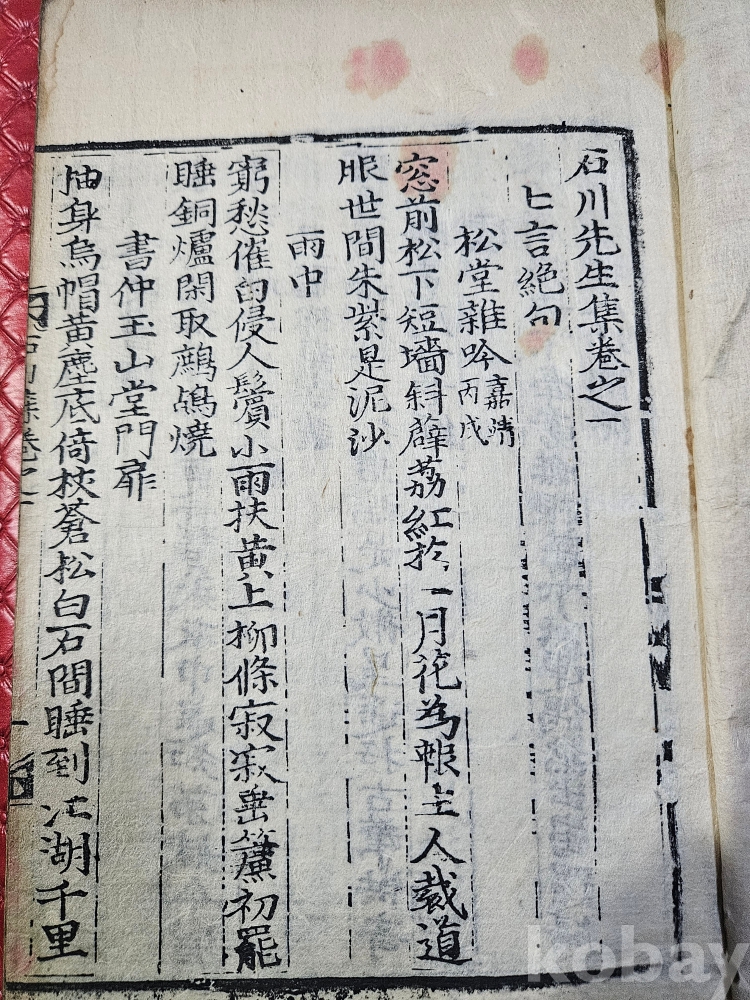 石川先生集卷之一
七言絕句
松堂雜吟 嘉靖丙戌
窓前松下短墻斜薜荔紅於二月花為報主人莪道
眼世間朱紫是泥沙
雨中
窮愁催臼侵人鬢小雨扶黃上柳條寂寂垂簾初罷
睡銅爐閑取鷓鴣燒
書仲玉山堂門扉
抽身烏帽黃塵底倚杖蒼松白石間睡到江湖千里
石川集卷之一
一
kobay